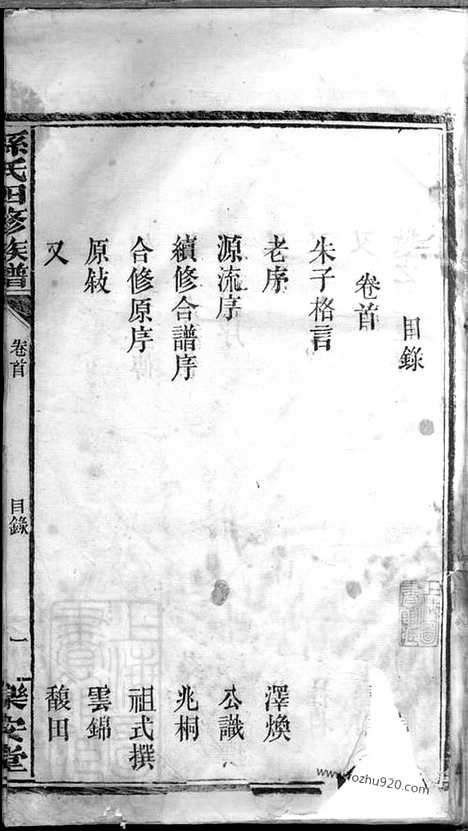 目錄
卷首
朱子格言
老序 澤煥
源流序 公識
續修合譜序 兆桐
合修原序 祖式撰
原敍 雲錦
又 馥田
孫氏四修族譜
卷首
目錄
一
樂安堂
www.fozhu920.com